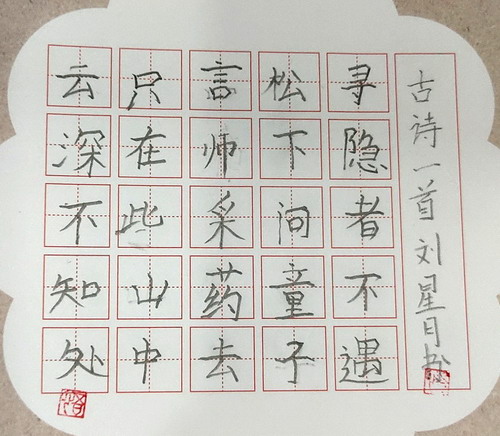 古诗一首 刘星月书
寻隐者不遇
松下问童子
言师采药去
只在此山中
云深不知处